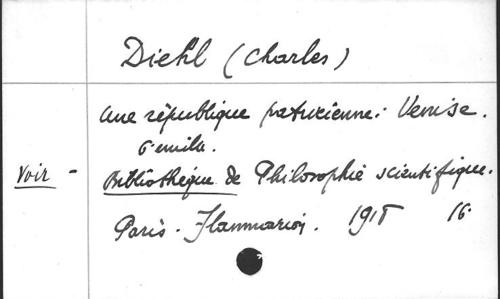 Diehl (Charles)
Une république patricienne: Venise.
6e mille.
Voir - Bibliothèque de Philosophie scientifique.
Paris. Flammarion. 1918 16